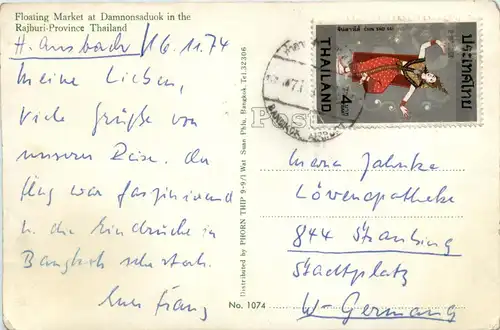 Floating Market at Damnonsaduok in the
Rajburi-Province Thailand
16.11.74
Meine Lieben,
viele Grüße von
unserer Reise. Der
Flug war faszinierend
u. die Eindrücke in
Bangkok sehr stark.
Euer Franz
Distributed by PHORN THIP 9-9/1 Wat Suan Phlu, Bangkok. Tel.32306
No. 1074
Post
BANGKOK
ประเทศไทย
THAILAND
4
Maria Jahnke
Löwenapotheke
844 Straubing
Stadtplatz
W-Germany